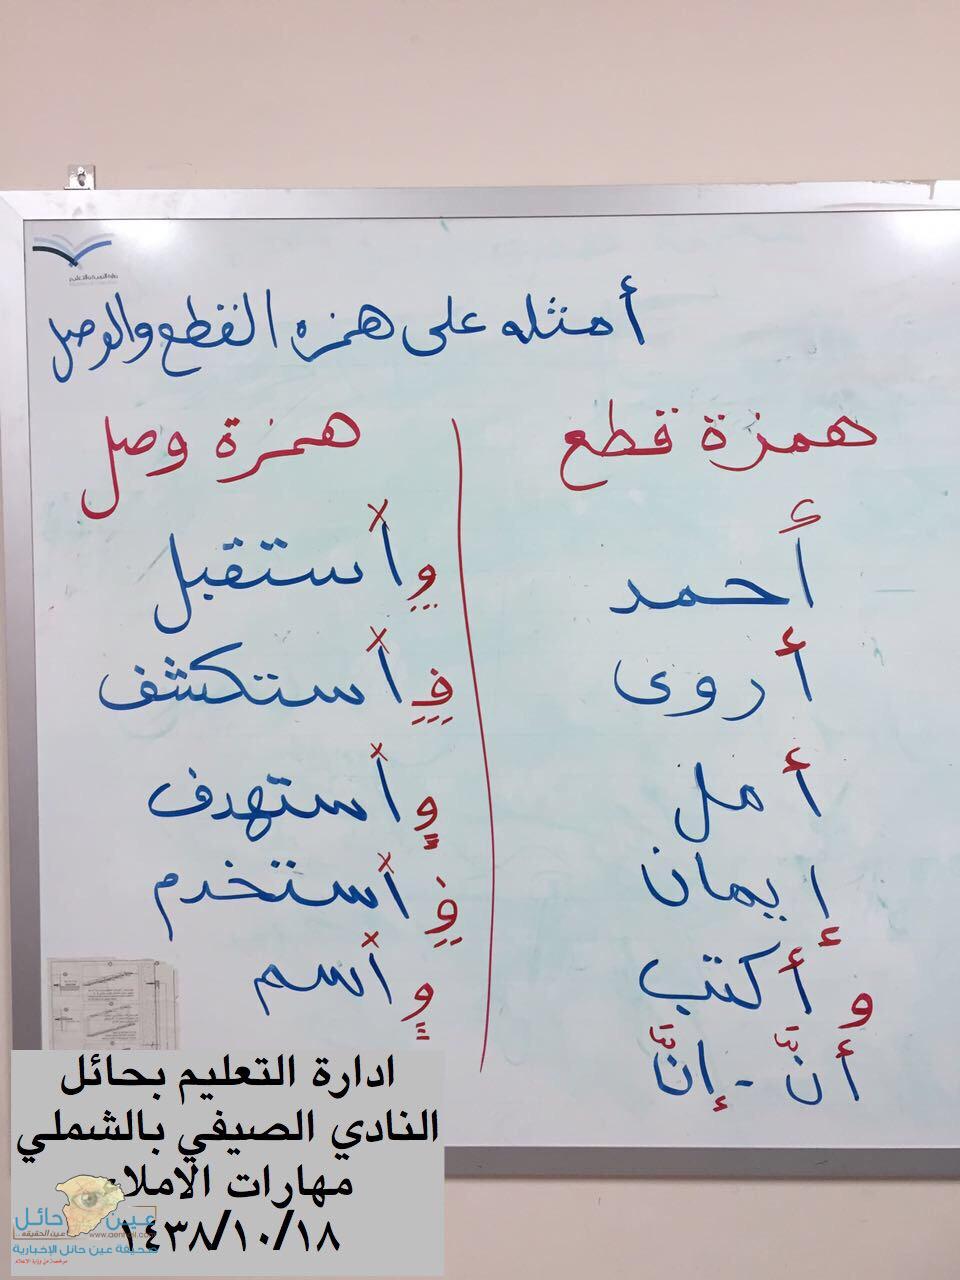 وزارة التربية والتعليم
أمثله على همزه القطع والوصل
همزة قطع
أحمد
أروى
أمل
إيمان
وأكتب
أنَّ - إنَّ
همزة وصل
وِاستقبل
فِاستكشف
وٍاستهدف
فِاستخدم
وٍاسم
ادارة التعليم بحائل
النادي الصيفي بالشملي
مهارات الاملاء
١٤٣٨/١٠/١٨
عين حائل
عين الحقيقه
صحيفة عين حائل الإخبارية
مرخصة من وزارة الاعلام